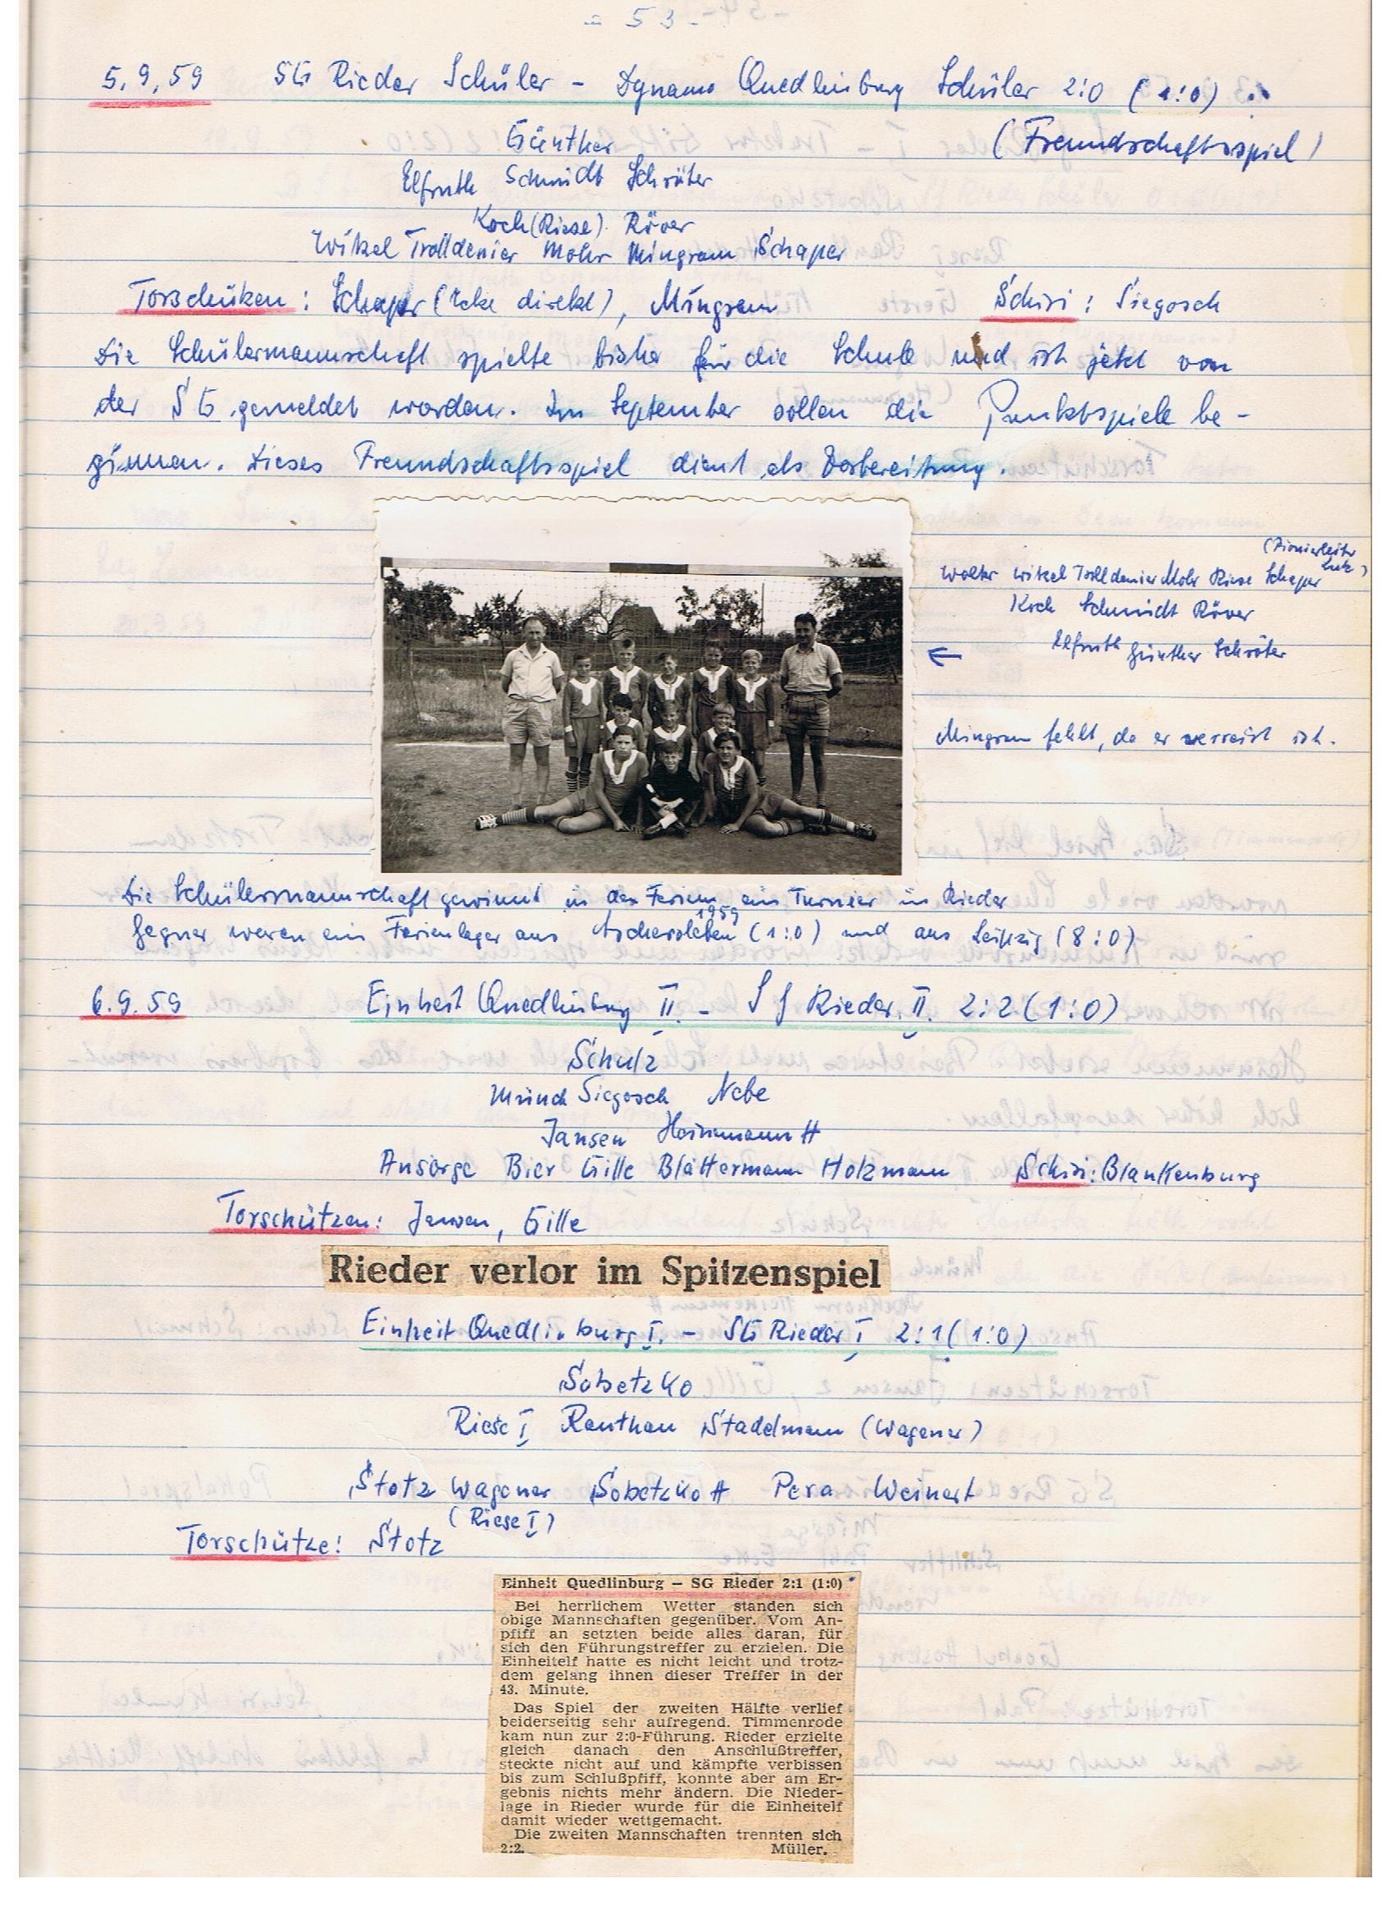 - 53 -
5.9.59 SG Rieder Schüler - Dynamo Quedlinburg Schüler 2:0 (1:0)
(Freundschaftsspiel)
Günther
Elfruth Schmidt Schröter
Koch (Riese) Röver
Witzel Trolldenier Mohr Mingram Schaper
Torschützen: Schaper (Ecke direkt), Mingram Schiri: Siegosch
Die Schülermannschaft spielte bisher für die Schule und ist jetzt von
der SG gemeldet worden. Im September sollen die Punktspiele be-
ginnen. Dieses Freundschaftsspiel dient als Vorbereitung.
(Pionierleiter
Wolter Witzel Trolldenier Mohr Riese Schaper
Koch Schmidt Röver
← Elfruth Günther Schröter
Mingram fehlt, da er verreist ist.
Die Schülermannschaft gewinnt in den Ferien 1959 ein Turnier in Rieder
Gegner waren ein Ferienlager aus Aschersleben (1:0) und aus Leipzig (8:0)
6.9.59 Einheit Quedlinburg II. - SG Rieder II. 2:2 (1:0)
Schulz
Münch Siegosch Nebe
Jansen Heinemann II
Ansorge Bier Gille Blättermann Holzmann Schiri: Blankenburg
Torschützen: Jansen, Gille
Rieder verlor im Spitzenspiel
Einheit Quedlinburg I. - SG Rieder I 2:1 (1:0)
Sobetzko
Riese I Ranthan Stadelmann (Wagener)
Stotz Wagener Sobetzko II Pera Weinert
(Riese I)
Torschütze: Stotz
Einheit Quedlinburg — SG Rieder 2:1 (1:0)
Bei herrlichem Wetter standen sich
obige Mannschaften gegenüber. Vom An-
pfiff an setzten beide alles daran, für
sich den Führungstreffer zu erzielen. Die
Einheitelf hatte es nicht leicht und trotz-
dem gelang ihnen dieser Treffer in der
43. Minute.
Das Spiel der zweiten Hälfte verlief
beiderseitig sehr aufregend. Timmenrode
kam nun zur 2:0-Führung. Rieder erzielte
gleich danach den Anschlußtreffer,
steckte nicht auf und kämpfte verbissen
bis zum Schlußpfiff, konnte aber am Er-
gebnis nichts mehr ändern. Die Nieder-
lage in Rieder wurde für die Einheitelf
damit wieder wettgemacht.
Die zweiten Mannschaften trennten sich
2:2. Müller.